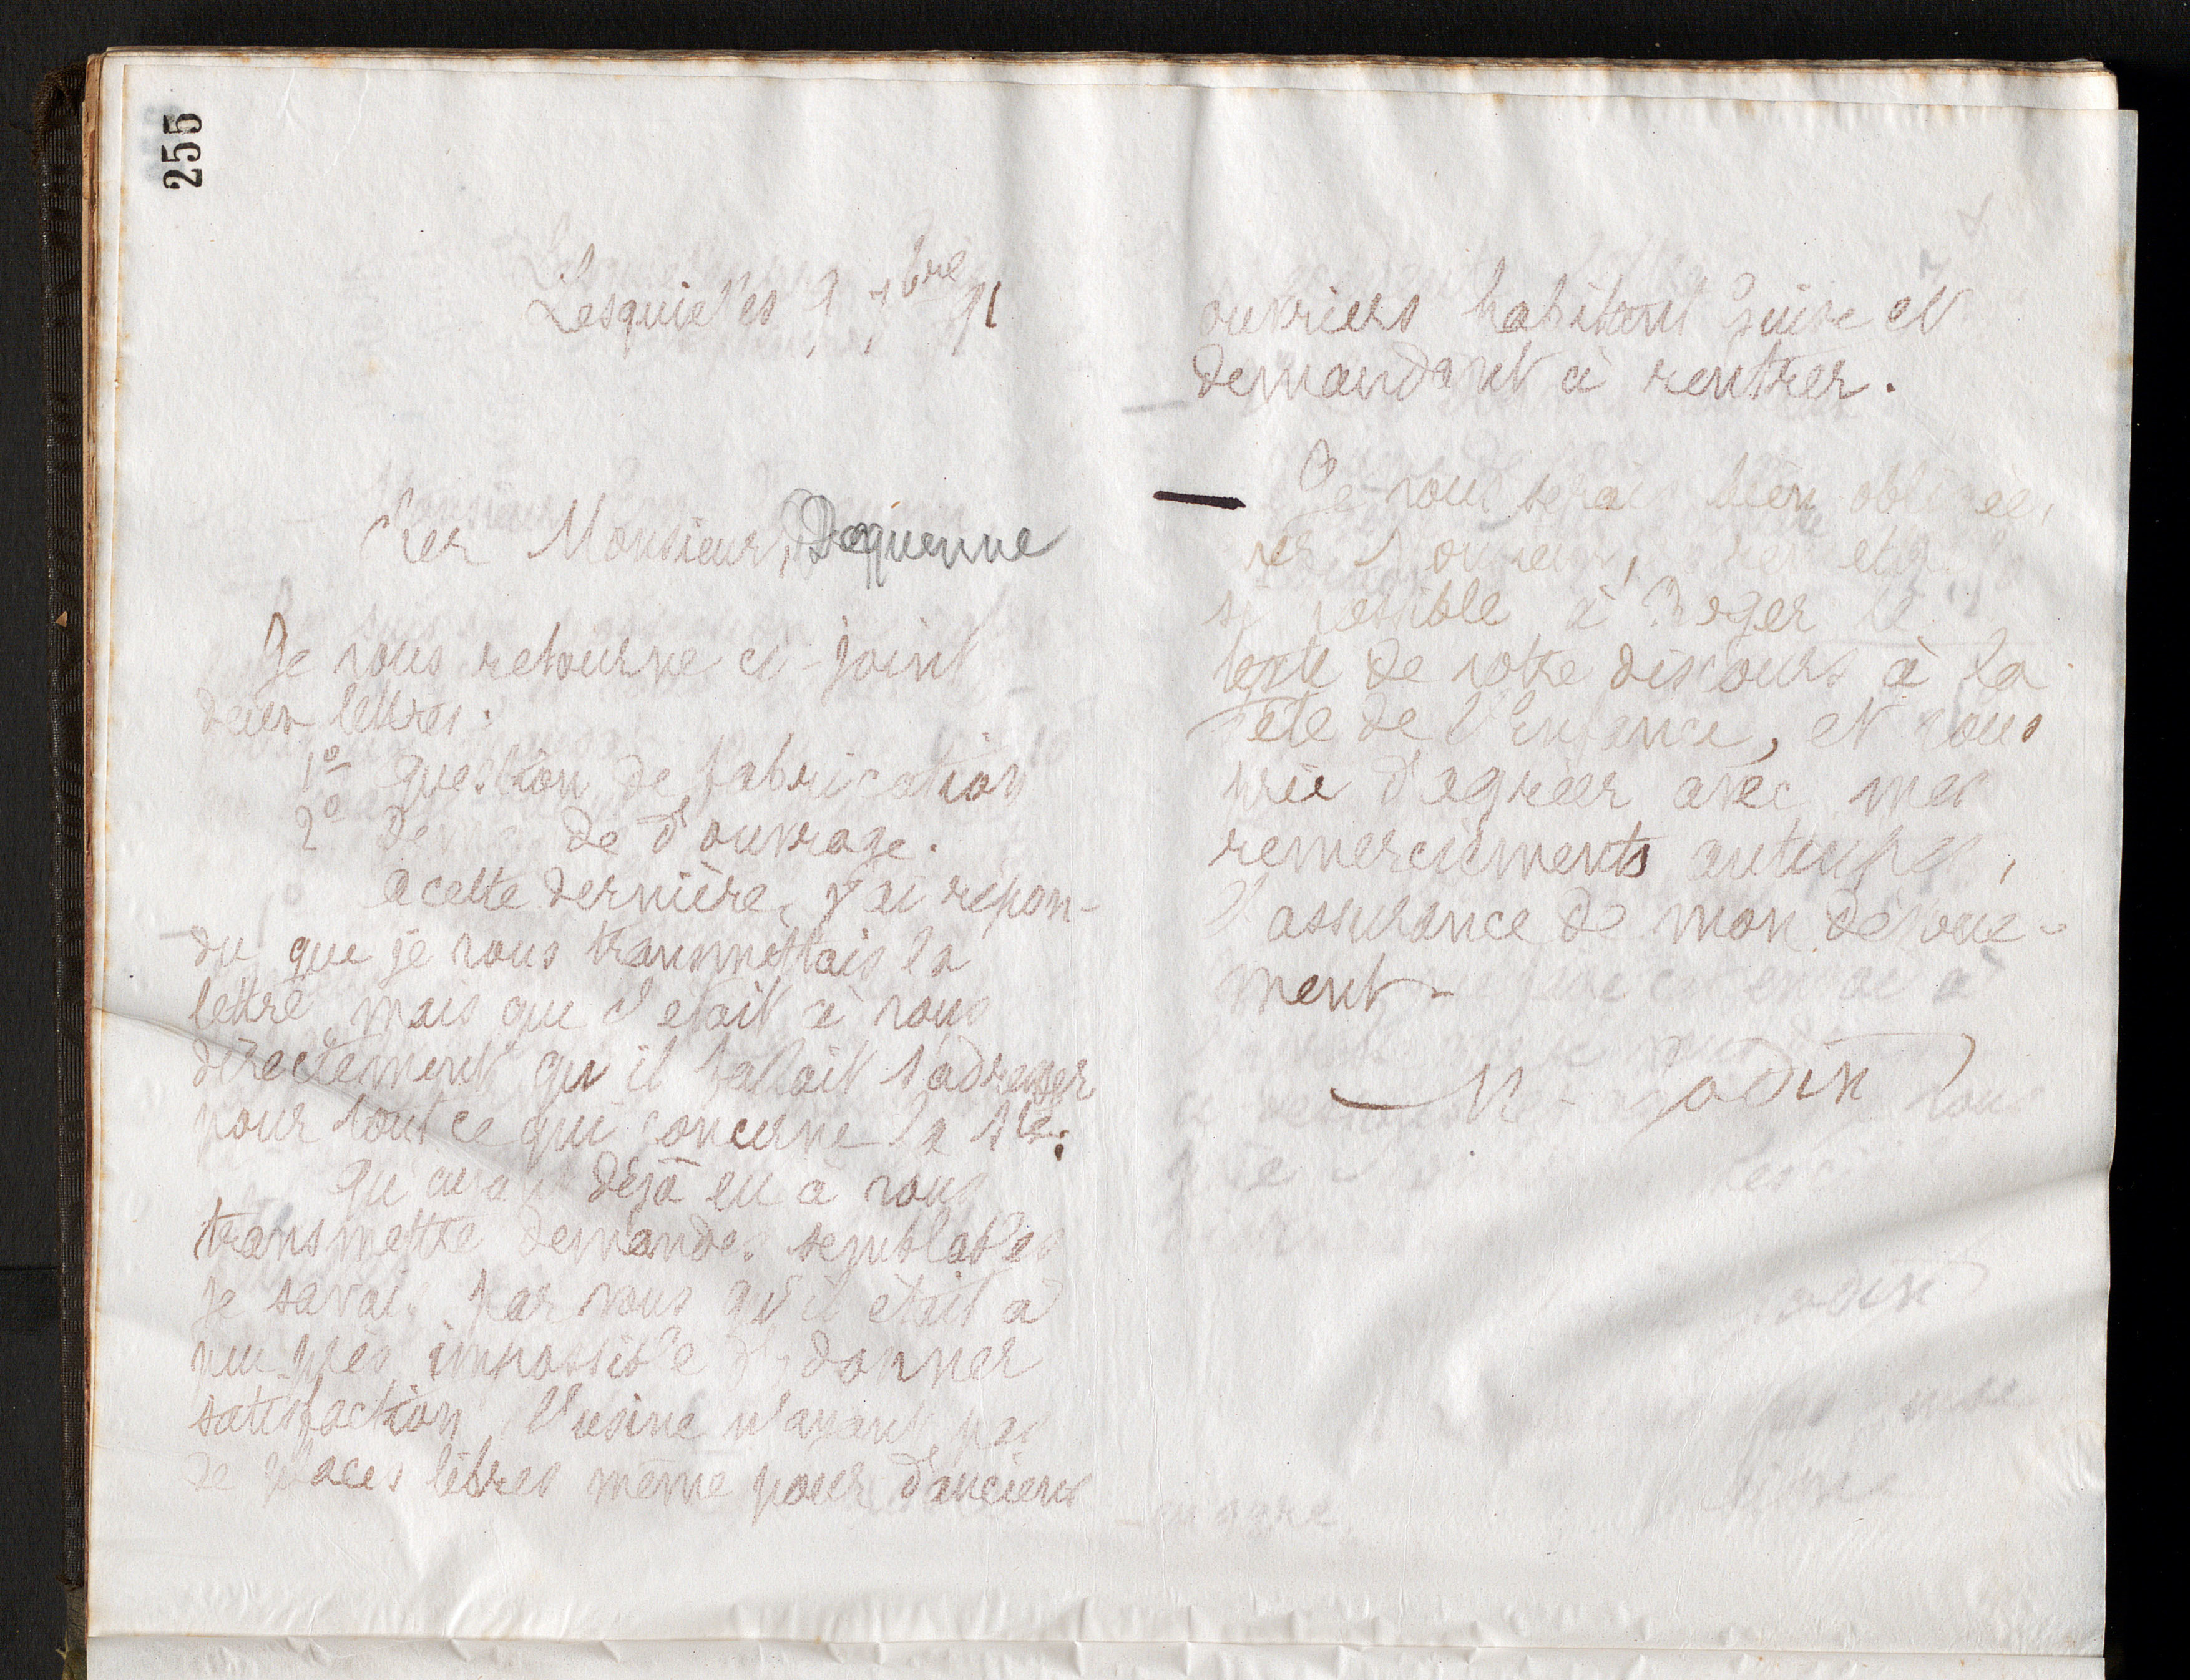 255
Lesquielles 9 7bre 91
Cher Monsieur, Dequenne
Je vous retourne ci-joint
deux lettres:
1o question de fabrication
2o demande d'ouvrage.
a cette dernière, j'ai répon-
du que je vous transmettais la
lettre mais que c'était à vous
directement qu'il fallait s'adresser
pour tout ce qui concerne la Sté.
qu'ayant déjà eu à vous
transmettre demandes semblables
je savais par vous qu'il était à
peu-près impossible d'y donner
satisfaction l'usine n'ayant pas
de places libres même pour d'anciens
ouvriers habitant Guise et
demandant à rentrer.
Je vous serais bien obligée,
cher Monsieur, remettre
si possible à Roger le
texte de votre discours à la
fête de l'Enfance, et vous
prie d'agréer avec mes
remerciements anticipés,
l'assurance de mon dévoue-
ment-
Godin